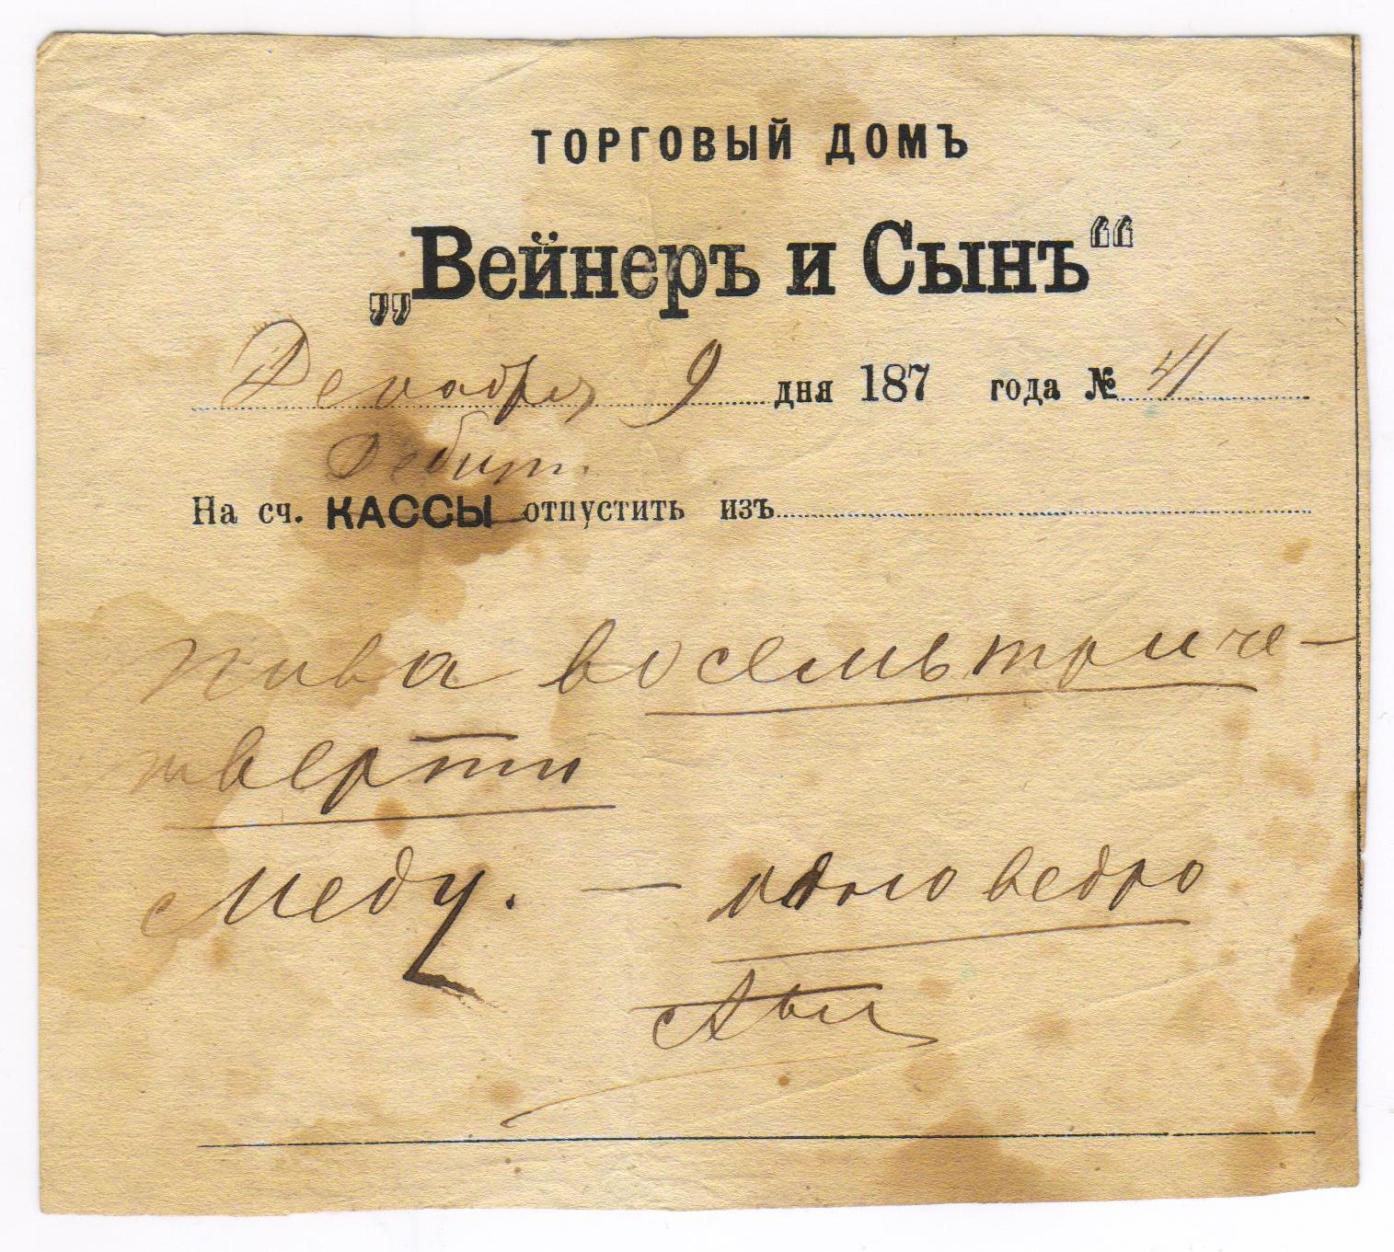 ТОРГОВЫЙ ДОМЪ
„Вейнеръ и Сынъ“
Декабря 9 дня 187 года № 41
Дебит.
На сч. КАССЫ отпустить изъ
Пива восемь три че-
тверти
Меду. — одно ведро